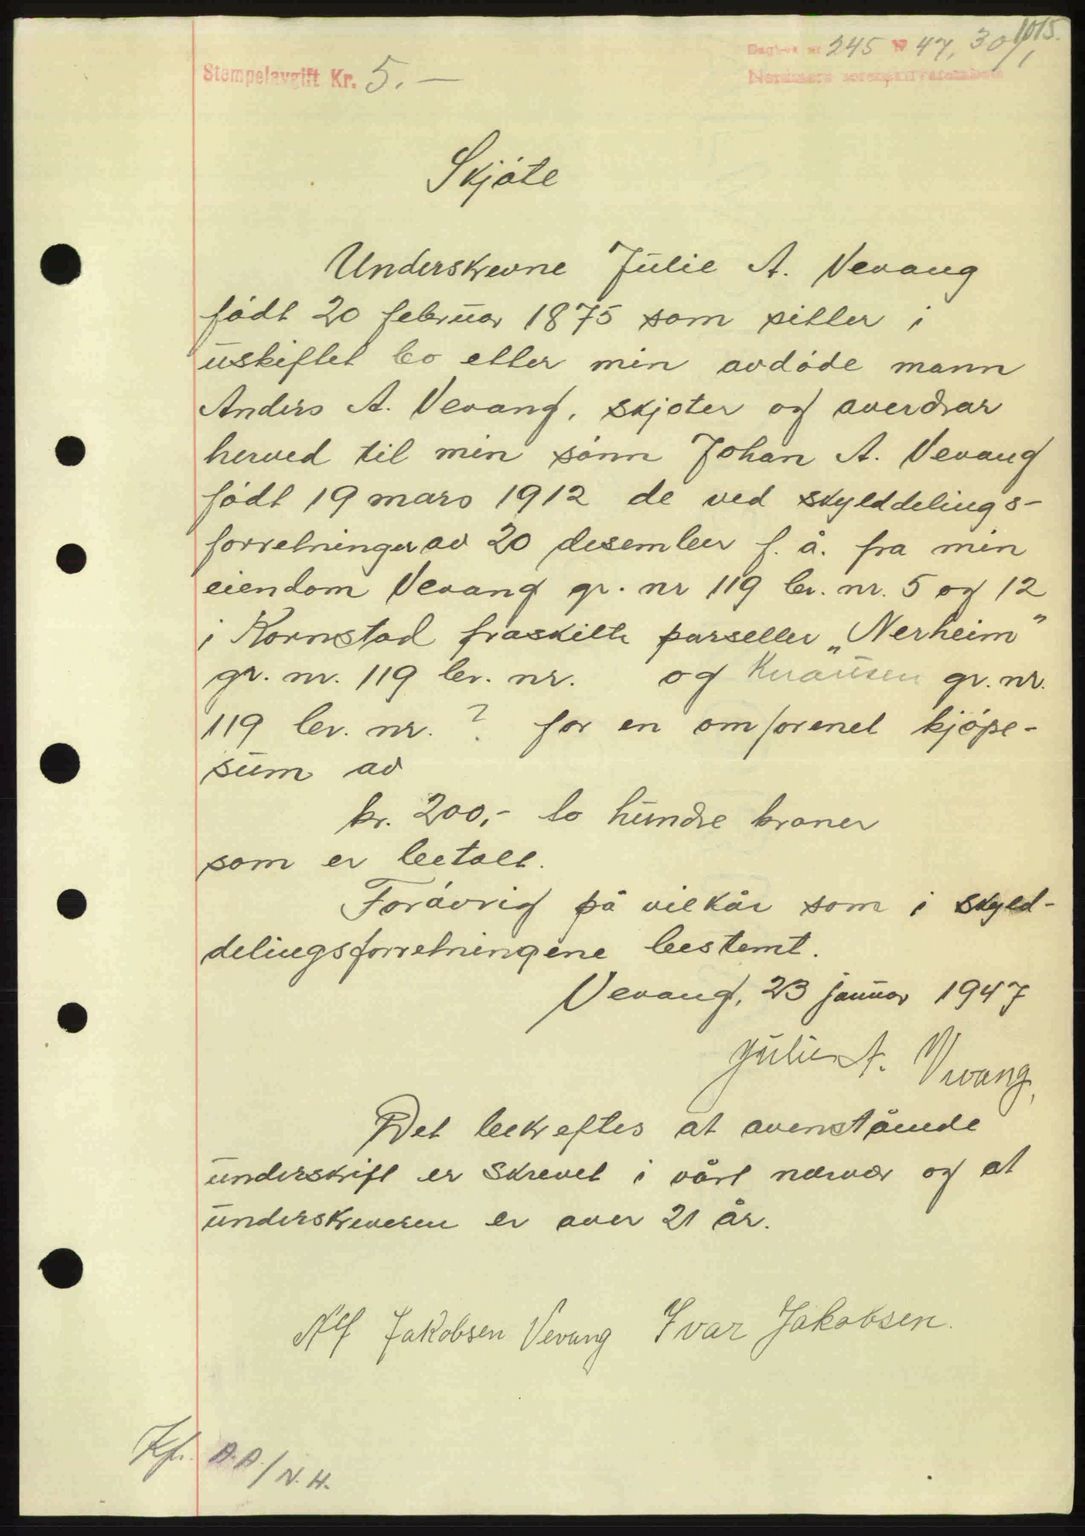 1015.
Dagbok nr 245 19 47, 30/1
Stempelavgift Kr. 5.—
Nordmøre sorenskriverembete
Skjøte
Underskrevne Julie A. Vevang
født 20 februar 1875 som sitter i
uskiftet bo etter min avdøde mann
Anders A. Vevang, skjøter og overdrar
herved til min sønn Johan A. Vevang
født 19 mars 1912 de ved skylddelings-
forretninger av 20 desember f. å. fra min
eiendom Vevang gr. nr 119 br. nr. 5 og 12
i Kornstad fraskilte parseller „Nerheim"
gr. nr. 119 br. nr. og Knausen gr. nr.
119 br. nr. ? for en omforenet kjøpe-
sum av
kr. 200,- to hundre kroner
som er betalt.
Forøvrig på vilkår som i skyld-
delingsforretningene bestemt.
Vevang, 23 januar 1947
Julie A. Vevang.
Det bekreftes at ovenstående
underskrift er skrevet i vårt nærvær og at
underskriveren er over 21 år.
Alf Jakobsen Vevang Ivar Jakobsen.
Kf. A.A./N.H.